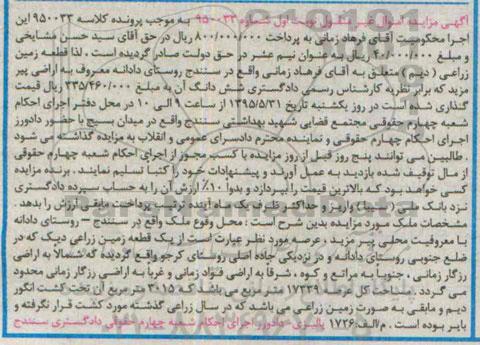 آگهی مزایده اموال غیر منقول نوبت اول شماره ۹۵۰۰۳۳ به موجب پرونده کلاسه ۹۵۰۰۳۳ این
اجرا محکومیت آقای فرهاد زمانی به پرداخت ۸۰۰/۰۰۰/۰۰۰ ریال در حق آقای سید حسن مشایخی
و مبلغ ۴۰/۰۰۰/۰۰۰ ریال به عنوان نیم عشر در حق دولت صادر گردیده است . لذا قطعه زمین
زراعی ( دیم ) متعلق به آقای فرهاد زمانی واقع در سنندج روستای دادانه معروف به اراضی پیر
مزید که برابر نظریه کارشناس رسمی دادگستری شش دانگ آن به مبلغ ۳۳۵/۴۶۰/۰۰۰ ریال قیمت
گذاری شده است در روز یکشنبه تاریخ ۱۳۹۵/۵/۳۱ از ساعت ۹ الی ۱۰ در محل دفتر اجرای احکام
شعبه چهارم حقوقی مجتمع قضایی شهید بهشتی سنندج واقع در میدان بسیج با حضور دادورز
اجرای احکام چهارم حقوقی و نماینده محترم دادسرای عمومی و انقلاب به مزایده گذاشته می شود
. طالبین می توانند پنج روز قبل از روز مزایده با کسب مجوز از اجرای احکام شعبه چهارم حقوقی
از مال توقیف شده بازدید به عمل آورند و پیشنهادات خود را کتبا تسلیم نمایند. برنده مزایده
کسی خواهد بود که بالاترین قیمت را بپردازد و بدوا ۱۰٪ ارزش آن را به حساب سپرده دادگستری
نزد بانک ملی ( سیبا ) واریز و حداکثر ظرف یک ماه آینده ترتیب پرداخت مابقی ارزش را بدهد .
مشخصات ملک مورد مزایده بدین شرح است : محل وقوع ملک واقع در سنندج – روستای دادانه
با معروفیت محلی پیر مزید ، عرصه مورد نظر عبارت است از یک قطعه زمین زراعی دیمی که در
ضلع جنوبی روستای دادانه و در نزدیکی جاده اصلی روستای کرجو واقع گردیده که شمالا به اراضی
رزگار زمانی ، جنوبا به مراتع و کوه ، شرقا به اراضی فواد زمانی و غربا به اراضی رزگار زمانی محدود
می گردد . مساحت کل عرصه ۱۷۳۳۹ متر مربع می باشد که ۳۰۱۵ متر مربع آن تحت کشت انگور
دیم و مابقی به صورت زمین زراعی می باشد که در سال زراعی گذشته مورد کشت قرار نگرفته و
بایر بوده است . م/الف:۱۷۲۶ دادورز اجرای احکام شعبه چهارم حقوقی دادگستری سنندج